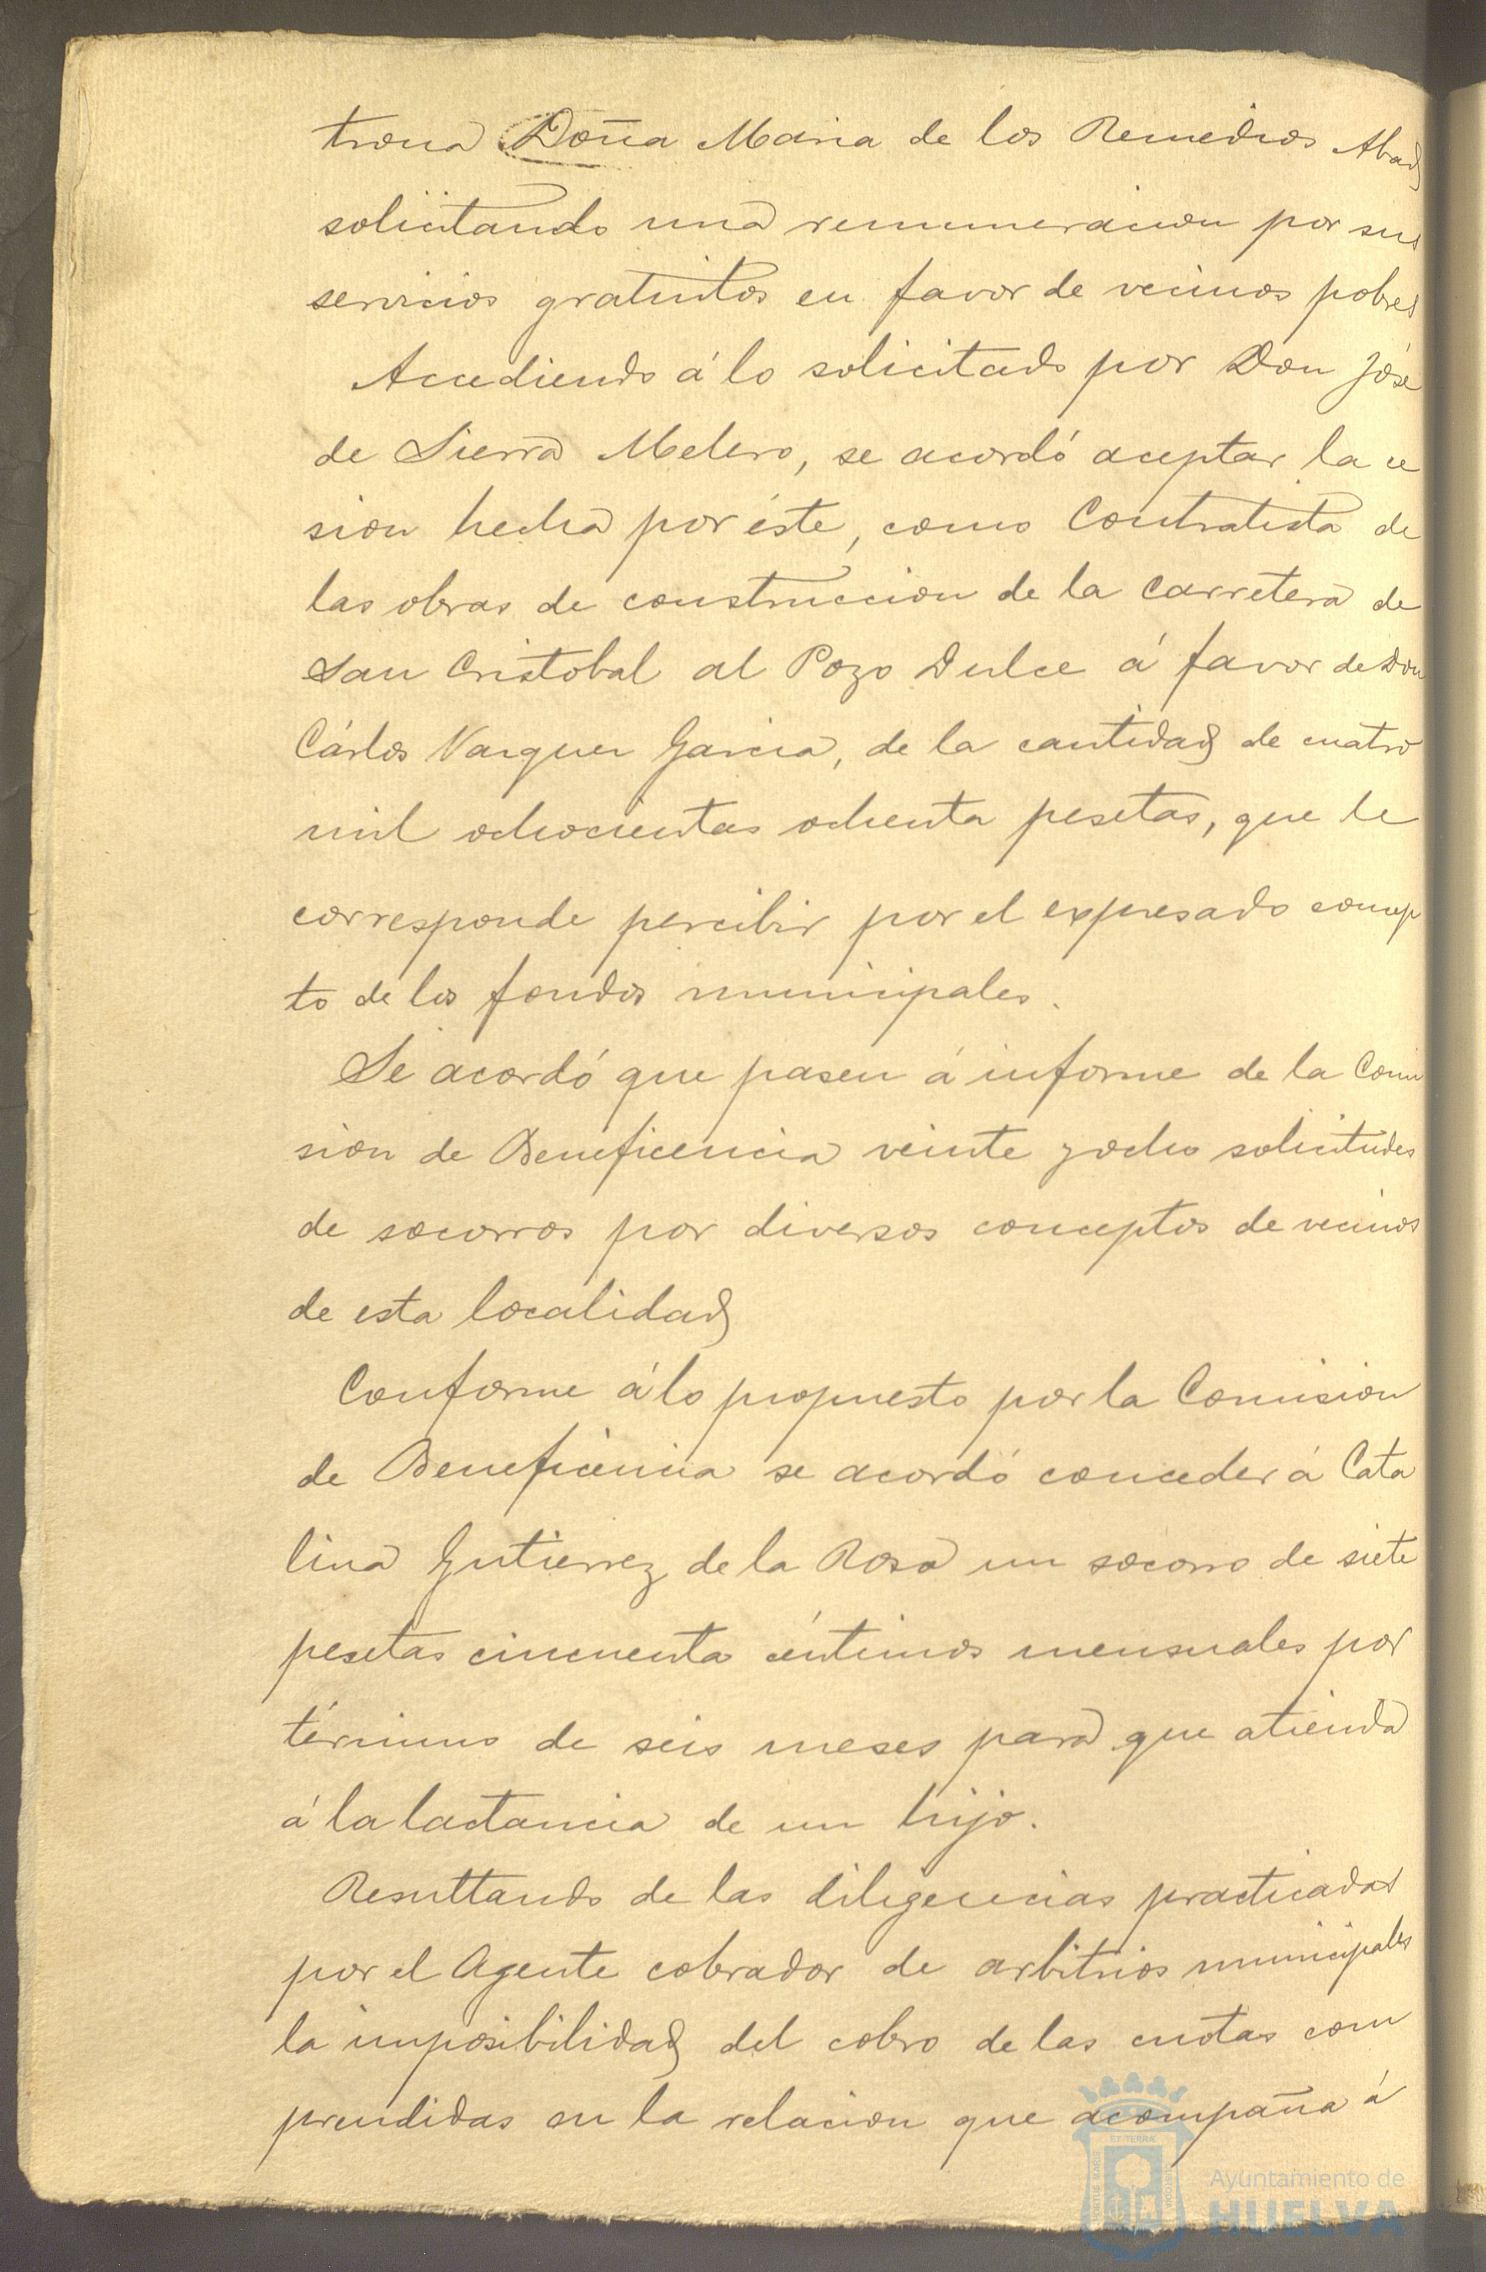 trona Doña Maria de los Remedios Abad
solicitando una remuneracion por sus
servicios gratuitos en favor de vecinos pobres
Accediendo á lo solicitado por Don José
de Sierra Melero, se acordó aceptar la ce
sion hecha por éste, como Contratista de
las obras de construccion de la Carretera de
San Cristobal al Pozo Dulce á favor de Don
Cárlos Garcia, de la cantidad de cuatro
mil ochocientas ochenta pesetas, que le
corresponde percibir por el expresado concep
to de los fondos municipales.
Se acordó que pasen á informe de la Comi
sion de Beneficencia veinte y ocho solicitudes
de socorros por diversos conceptos de vecinos
de esta localidad
Conforme á lo propuesto por la Comision
de Beneficencia se acordó conceder á Cata
lina Gutierrez de la Rosa un socorro de siete
pesetas cincuenta céntimos mensuales por
término de seis meses para que atienda
á la lactancia de un hijo.
Resultando de las diligencias practicadas
por el Agente cobrador de arbitrios municipales
la imposibilidad del cobro de las cuotas com
prendidas en la relacion que acompaña á
Ayuntamiento de
HUELVA